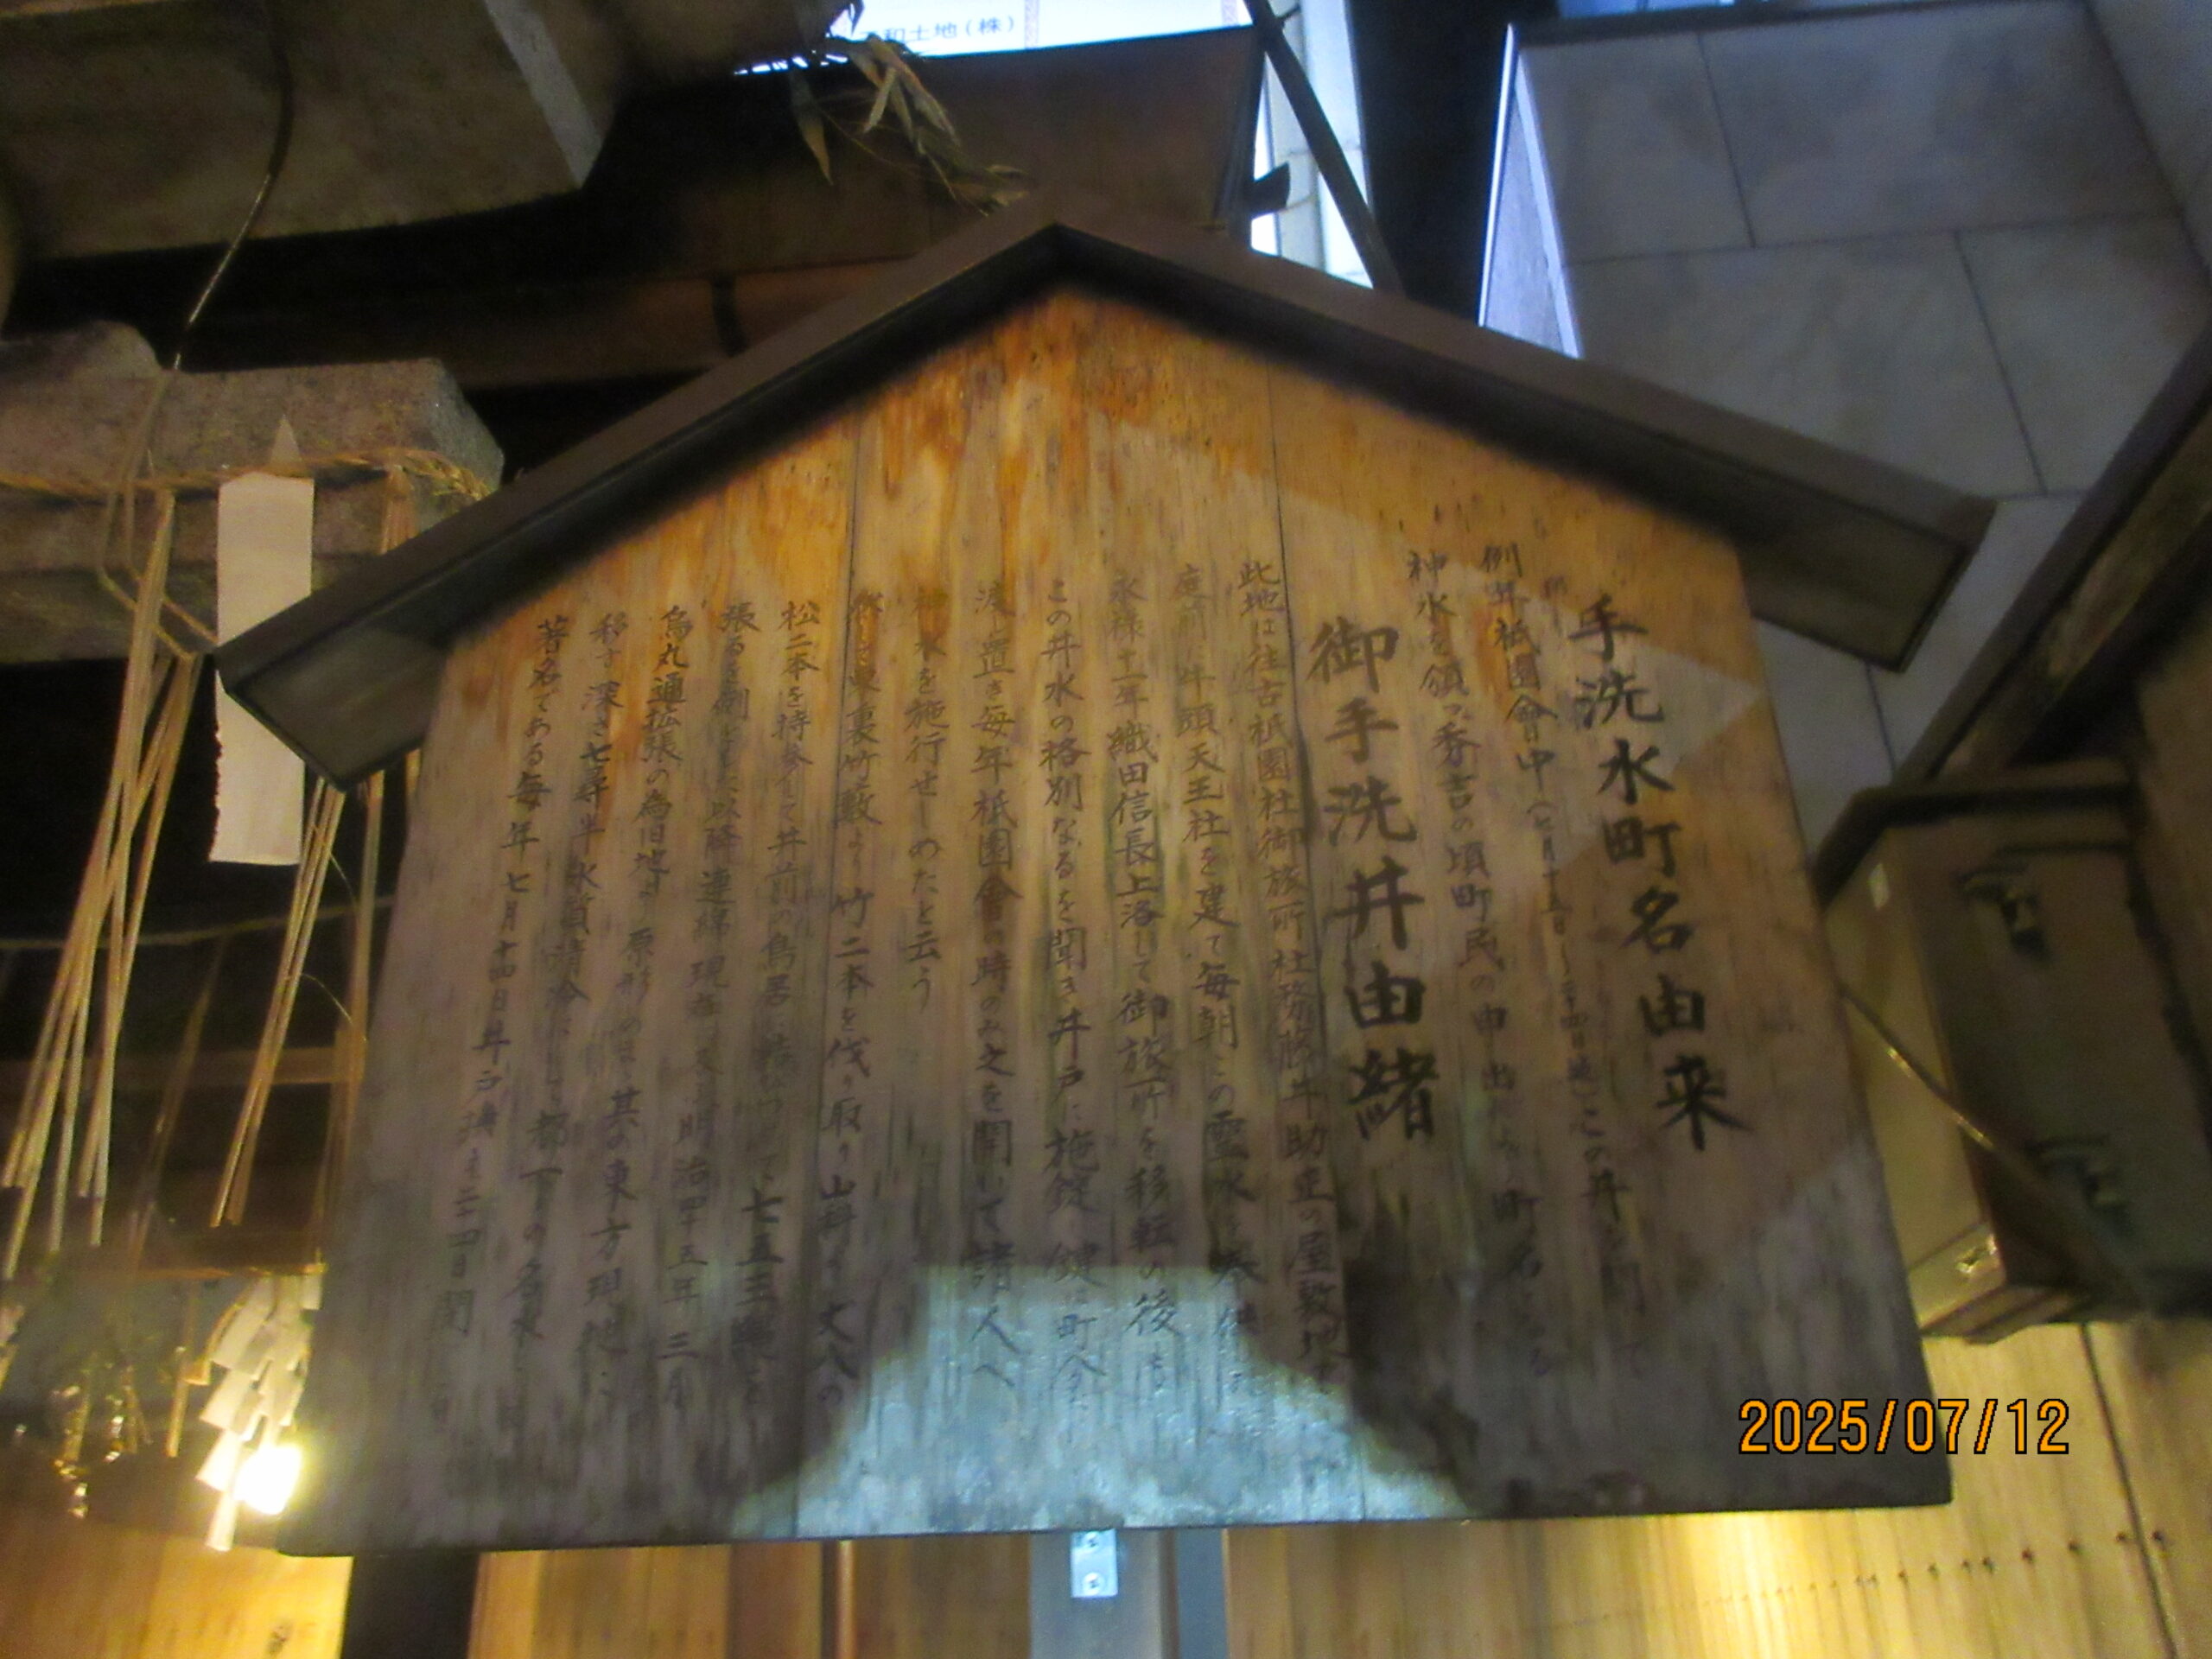 和土地(株)
手洗水町名由来
例年祇園會中(七月十五日～二十四日迄)この井を開いて
神水を領つ秀吉の頃町民の申出により町名となる
御手洗井由緒
此地は往古祇園社御旅所社務藤井助正の屋敷地
庭前に牛頭天王社を建て毎朝この霊水を
永禄十一年織田信長上洛して御旅所を移転の後も
この井水の格別なるを聞き井戸に施錠し鍵は町
渡し置き毎年祇園會の時のみ之を開いて諸人へ
神水を施行せしめたと云う
東裏竹藪より竹二本を伐り取り山科 丈八の
松二本を持参して井前の鳥居に 七五三縄を
張るを例とし以降連綿現在 又明治四十五年三月
烏丸通拡張の為旧地より原形のまま其の東方現地に
移す深さ七尋半水質清冷にして都下の名水
著名である毎年七月十四日井戸 二十四日
2025/07/12